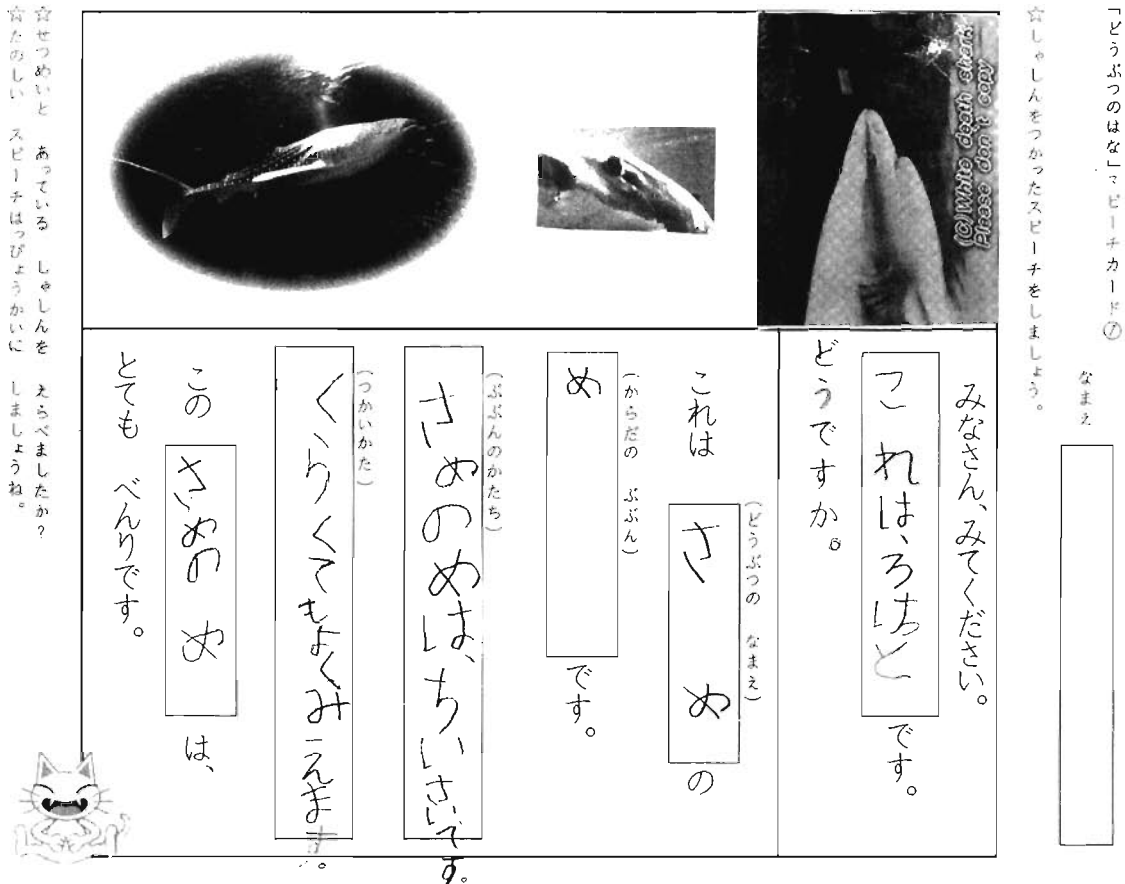 「どうぶつのはな」スピーチカード①
なまえ
☆しゃしんをつかったスピーチをしましょう。
(C)White death shark
Please don't copy
みなさん、みてください。
これは、ろけっとです。
どうですか。
(どうぶつの なまえ)
これは さめの
(からだの ぶぶん)
めです。
(ぶぶんのかたち)
さめのめは、ちいさいです。
(つかいかた)
くらくてもよくみえます。
この さめの めは、
とても べんりです。
☆せつめいと あっている しゃしんを えらべましたか?
☆たのしい スピーチはっぴょうかいに しましょうね。